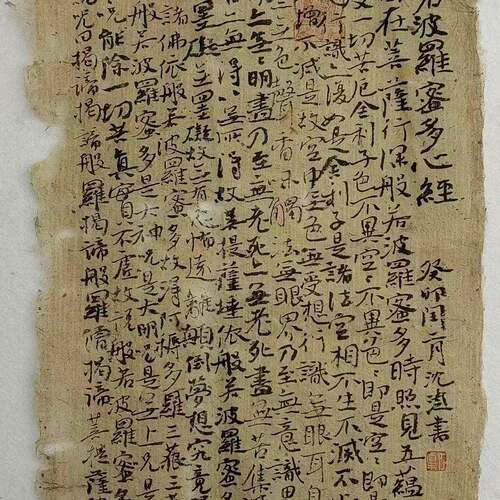 若波羅蜜多心經
癸卯閏二月沈書
在菩薩行深般若波羅蜜多時照見五蘊
度一切苦厄舍利子色不異空空不異色色即是空空即
行識亦復如是舍利子是諸法空相不生不滅不
增不減是故空中無色無受想行識無眼耳
色聲香味觸法無眼界乃至無意識界
無明盡乃至無老死亦無老死盡無苦集
亦無得以無所得故菩提薩埵依般若波羅蜜多
罣礙無罣礙故無有恐怖遠離顛倒夢想究竟
諸佛依般若波羅蜜多故得阿耨多羅三藐三
般若波羅蜜多是大神咒是大明咒是無上咒是
咒能除一切苦真實不虛故說般若波羅蜜多
呪曰揭諦揭諦般羅揭諦般羅僧揭諦菩提薩